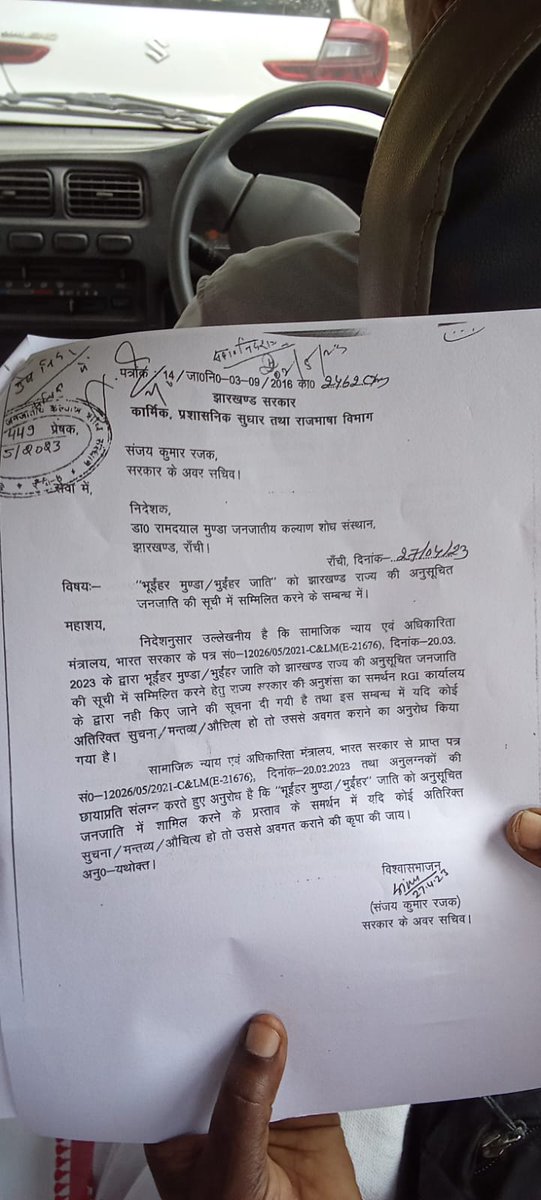 पत्रांक :-14/जा0नि0-03-09/2016 का0 2462
झारखण्ड सरकार
कार्मिक, प्रशासनिक सुधार तथा राजभाषा विभाग
449 प्रेषक,
5/2023
संजय कुमार रजक,
सरकार के अवर सचिव।
सेवा में,
निदेशक,
डा0 रामदयाल मुण्डा जनजातीय कल्याण शोध संस्थान,
झारखण्ड, राँची।
राँची, दिनांक- 27/04/23
विषयः- "भूईंहर मुण्डा/भुईंहर जाति" को झारखण्ड राज्य की अनुसूचित
जनजाति की सूची में सम्मिलित करने के सम्बन्ध में।
महाशय,
निदेशनुसार उल्लेखनीय है कि सामाजिक न्याय एवं अधिकारिता
मंत्रालय, भारत सरकार के पत्र सं0-12026/05/2021-C&LM(E-21676), दिनांक-20.03.
2023 के द्वारा भूईंहर मुण्डा/भुईंहर जाति को झारखण्ड राज्य की अनुसूचित जनजाति
की सूची में सम्मिलित करने हेतु राज्य सरकार की अनुशंसा का समर्थन RGI कार्यालय
के द्वारा नही किए जाने की सूचना दी गयी है तथा इस सम्बन्ध में यदि कोई
अतिरिक्त सुचना/मन्तव्य/औचित्य हो तो उससे अवगत कराने का अनुरोध किया
गया है।
सामाजिक न्याय एवं अधिकारिता मंत्रालय, भारत सरकार से प्राप्त पत्र
सं0-12026/05/2021-C&LM(E-21676), दिनांक-20.03.2023 तथा अनुलग्नकों की
छायाप्रति संलग्न करते हुए अनुरोध है कि "भूईंहर मुण्डा/भुईंहर" जाति को अनुसूचित
जनजाति में शामिल करने के प्रस्ताव के समर्थन में यदि कोई अतिरिक्त
सुचना/मन्तव्य/औचित्य हो तो उससे अवगत कराने की कृपा की जाय।
अनु0-यथोक्त।
विश्वासभाजन
27.4.23
(संजय कुमार रजक)
सरकार के अवर सचिव।